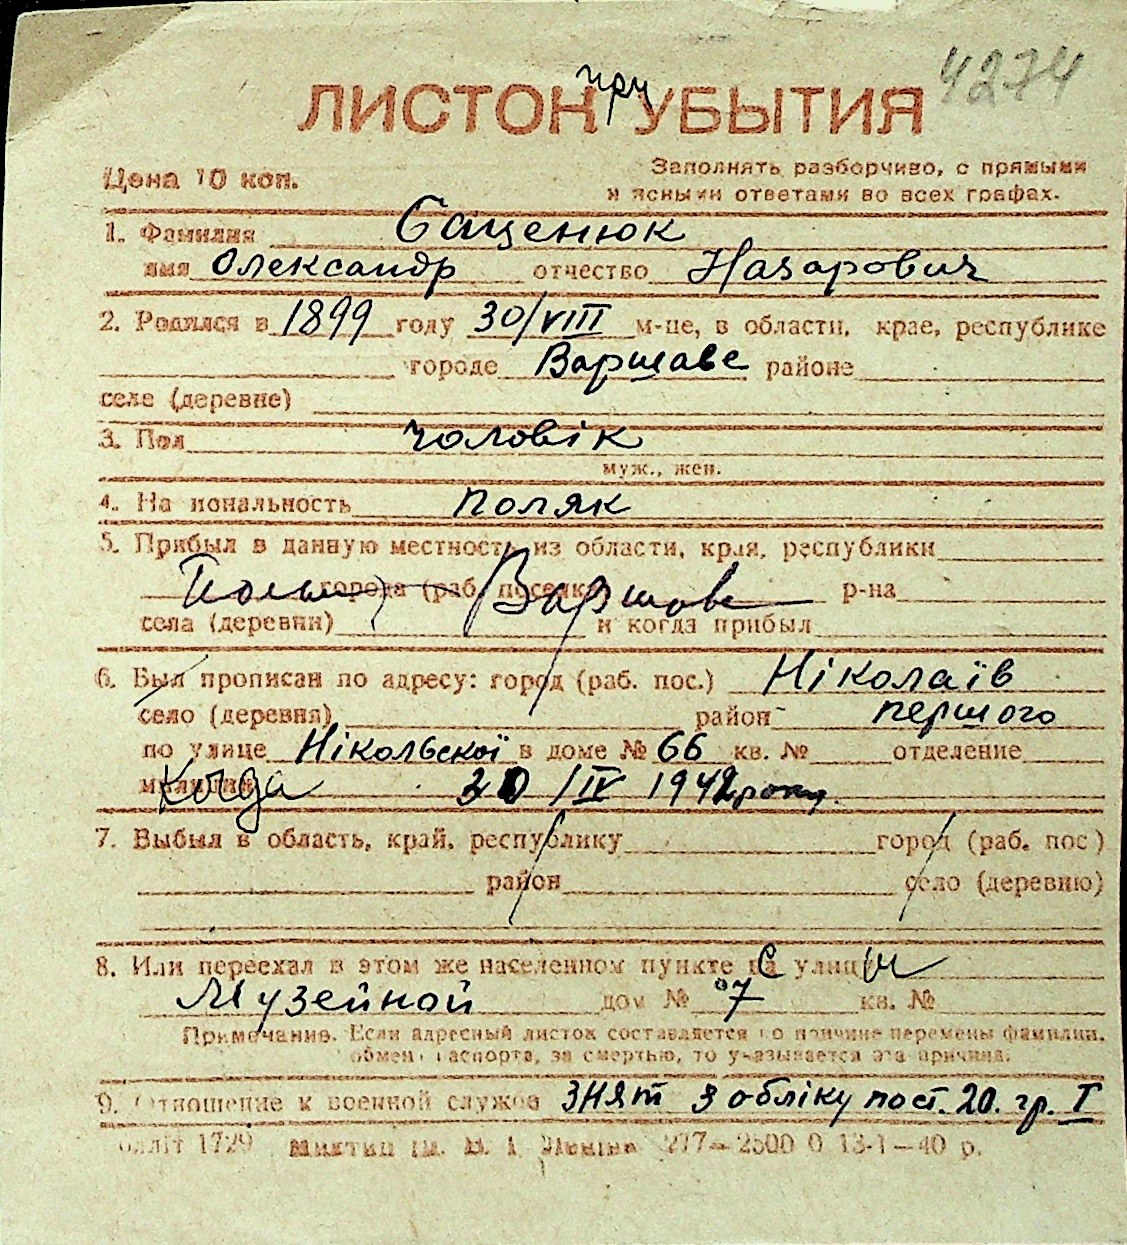 4274
ЛИСТОК при УБЫТИЯ
Цена 10 коп.
Заполнять разборчиво, с прямыми
и ясными ответами во всех графах.
1. Фамилия Саценюк
имя Олександр отчество Назарович
2. Родился в 1899 году 30/VIII м-це, в области, крае, республике
городе Варшаве районе
селе (деревне)
3. Пол чоловік
муж., жен.
4. Национальность поляк
5. Прибыл в данную местность из области, края, республики
города (раб. поселка Варшаве р-на
села (деревни) и когда прибыл
6. Был прописан по адресу: город (раб. пос.) Ніколаїв
село (деревня) район першого
по улице Нікольскої в доме № 66 кв. № отделение
милиции Когда 20/IV 1942 року.
7. Выбыл в область, край, республику город (раб. пос)
район село (деревню)
8. Или переехал в этом же населенном пункте С улицы
Музейной дом № 7 кв. №
Примечание. Если адресный листок составляется по причине перемены фамилии,
обмена паспорта, за смертью, то указывается эта причина.
9. Отношение к военной службе знят з обліку пост. 20. гр. I
олліт 1729 277–2500 0 13-1–40 р.